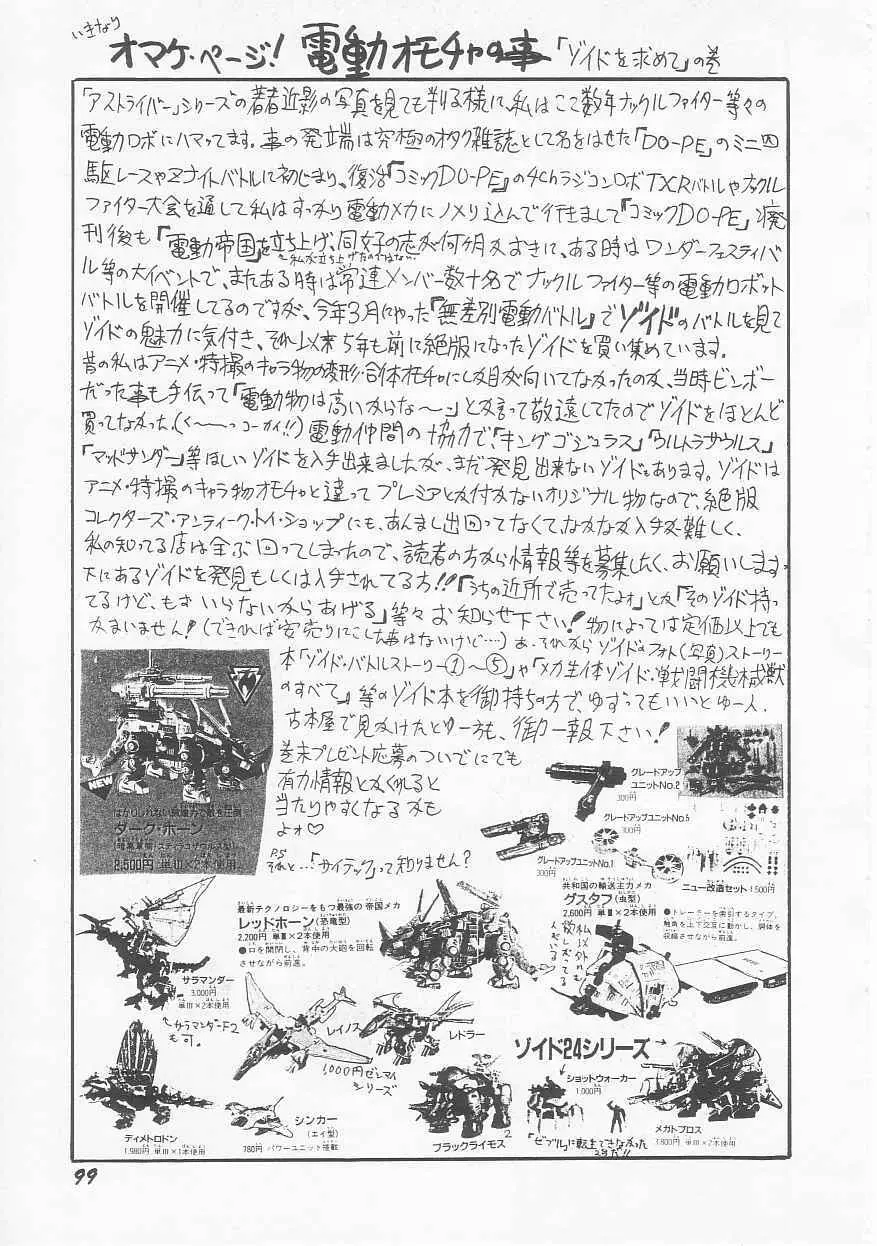 いきなり
オマケ・ページ! 電動オモチャの事 「ゾイドを求めて」の巻
「アストライバー」シリーズの著者近影の写真を見ても判る様に、私はここ数年ナックルファイター等々の
電動ロボにハマッてます。事の発端は究極のオタク雑誌として名をはせた「DO-PE」のミニ四
駆レースやZナイトバトルに初じまり、復活『コミックDO-PE』の4chラジコンロボTXRバトルやナックル
ファイター大会を通して私はすっかり電動メカにノメり込んで行きまして『コミックDO-PE』廃
刊後も『電動帝国』を立ち上げ、同好の志が何ヶ月かおきに、ある時はワンダーフェスティバ
私が立ち上げたのではない…
ル等の大イベントで、またある時は常連メンバー数十名でナックルファイター等の電動ロボット
バトルを開催してるのですが、今年3月にやった『無差別電動バトル』でゾイドのバトルを見て
ゾイドの魅力に気付き、それ以来5年も前に絶版になったゾイドを買い集めています。
昔の私はアニメ・特撮のキャラ物の変形・合体オモチャにしか目が向いてなかったのと、当時ビンボー
だった事も手伝って「電動物は高いからな〜」とか言って敬遠してたのでゾイドをほとんど
買ってなかった。(く〜〜っコーカイ!!) 電動仲間の協力で、「キングゴジュラス」「ウルトラザウルス」
「マッドサンダー」等ほしいゾイドを入手出来ましたが、まだ発見出来ないゾイドもあります。ゾイドは
アニメ・特撮のキャラ物オモチャと違ってプレミアとか付かないオリジナル物なので、絶版
コレクターズ・アンティーク・トイ・ショップにも、あんまし出回ってなくて、なかなか入手が難しく、
私の知ってる店は全ぶ回ってしまったので、読者の方から情報等を募集したく、お願いします。
下にあるゾイドを発見もしくは入手されてる方!!「うちの近所で売ってたよォ」とか「そのゾイド持っ
てるけど、もぉいらないからあげる」等々お知らせ下さい! 物によっては定価以上でも
かまいません!(できれば安売りにこした事はないけど…) あ、それからゾイドのフォト(写真)ストーリー
本「ゾイド・バトルストーリー①〜⑤」や「メカ生体ゾイド・戦闘機械獣
のすべて」等のゾイド本を御持ちの方で、ゆずってもいいとゆー人、
古本屋で見かけたとゆー方も、御一報下さい!
巻末プレゼント応募のついでにでも
有力情報とかくれると
当たりやすくなるかも
よォ♡
P.S
それと…!「サイテック」って知りません?
NEW
はかりしれない破壊力で敵を圧倒
ダーク・ホーン
(暗黒軍団・スティラコザウルス型)
2,500円 単III×2本使用
グレードアップ
ユニットNo.2
300円
グレードアップユニットNo.5
300円
グレードアップユニットNo.1
300円
ニュー改造セット1,500円
最新テクノロジーをもつ最強の帝国メカ
レッドホーン(恐竜型)
2,200円 単III×2本使用
●口を開閉し、背中の大砲を回転
させながら前進。
共和国の輸送主力メカ
グスタフ(虫型)
2,600円 単III×2本使用
●トレーラーを索引するタイプ。
触角を上下交互に動かし、胴体を
収縮させながら前進。
私以外の人も欲しがってるんでいる
サラマンダー
3,000円
単III×2本使用
サラマンダーF2
も可。
レイノス
レドラー
1,000円ゼンマイ
シリーズ
ゾイド24シリーズ
ショットウォーカー
1,000円
メガトプロス
3,800円 単III×2本使用
ディメトロドン
1,980円 単III×1本使用
シンカー
(エイ型)
780円 パワーユニット搭載
ブラックライモス
99